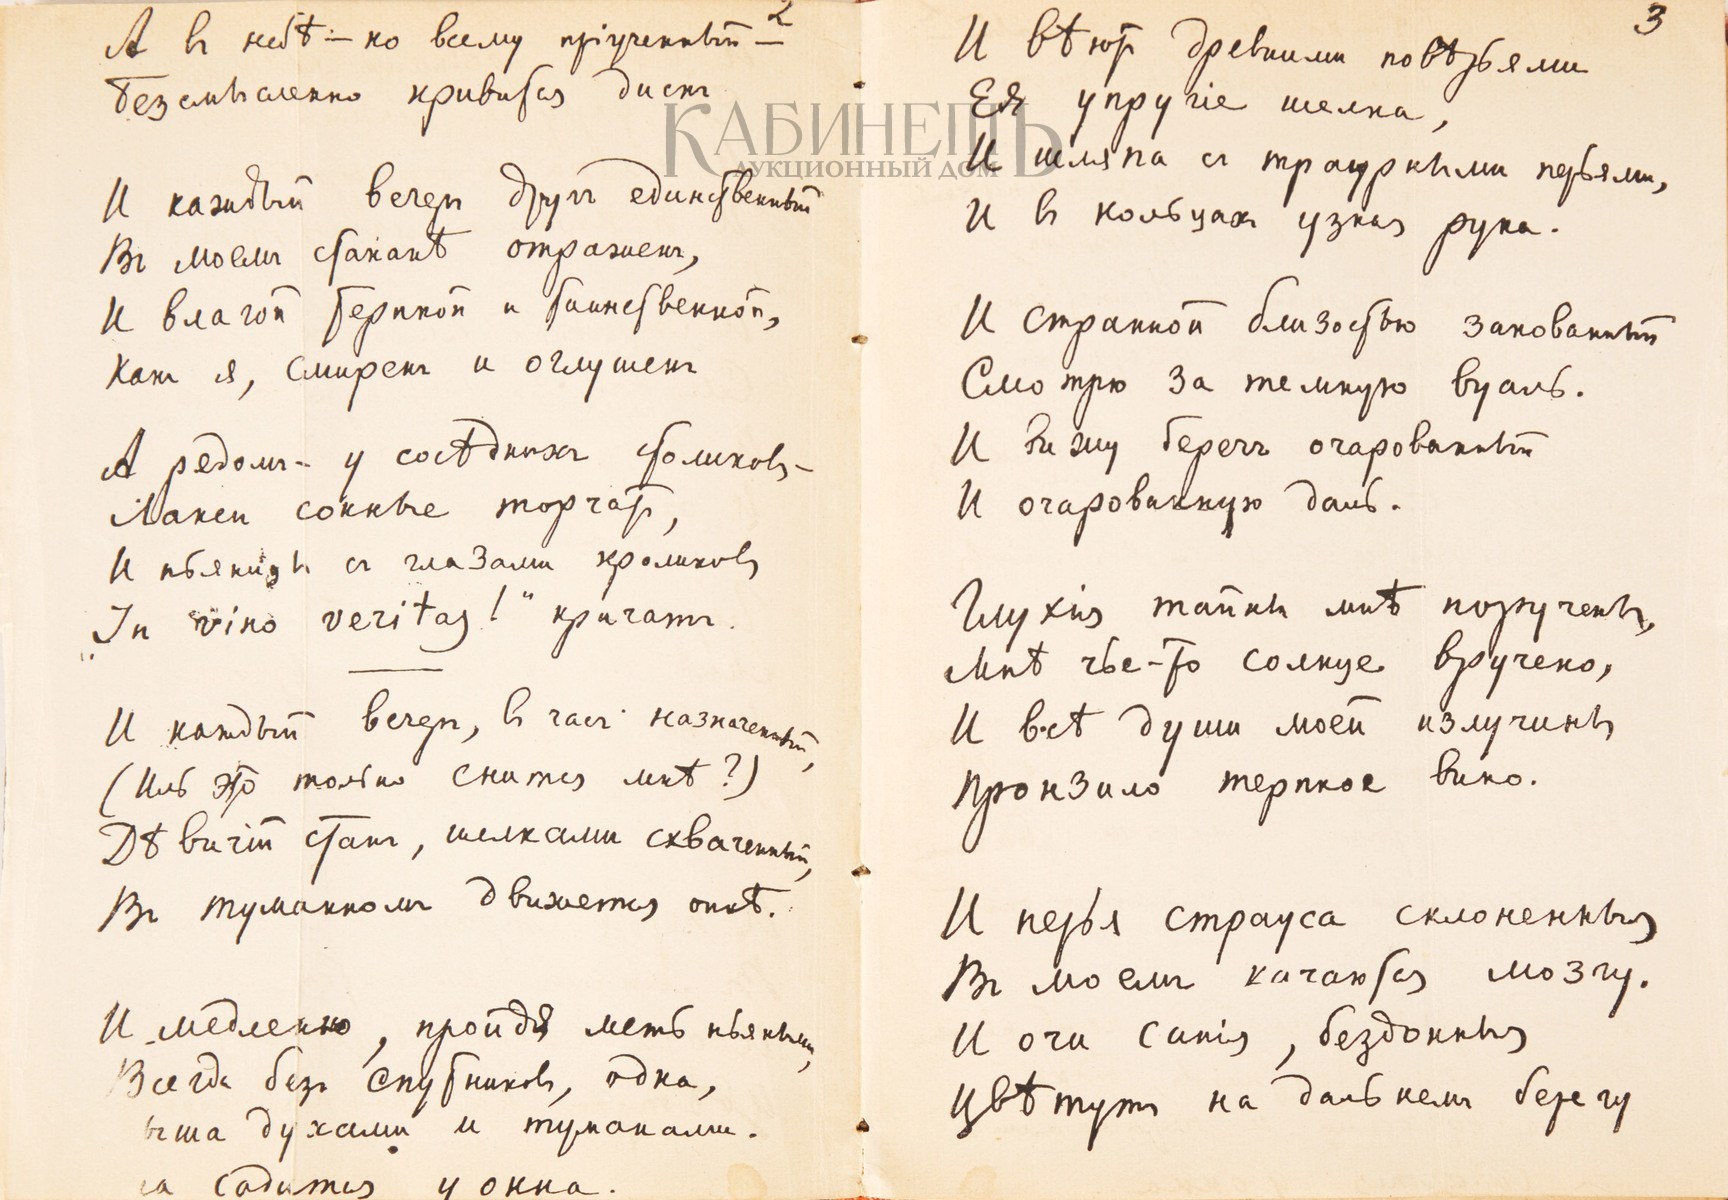 2
А въ небѣ – ко всему прiученный –
Безсмысленно кривится дискъ.
И каждый вечеръ другъ единственный
Въ моемъ стаканѣ отраженъ,
И влагой терпкой и таинственной,
Какъ я, смиренъ и оглушенъ
А рядомъ – у сосѣднихъ столиковъ –
Лакеи сонные торчатъ,
И пьяницы съ глазами кроликовъ
„In vino veritas!“ кричатъ.
И каждый вечеръ, въ часъ назначенный,
(Иль это только снится мнѣ?)
Дѣвичiй станъ, шелками схваченный,
Въ туманномъ движется окнѣ.
И медленно, пройдя межъ пьяными,
Всегда безъ спутниковъ, одна,
ыша духами и туманами.
на садится у окна.
3
И вѣютъ древними повѣрьями
Ея упругiе шелка,
И шляпа съ траурными перьями,
И въ кольцахъ узкая рука.
И странной близостью закованный
Смотрю за темную вуаль.
И вижу берегъ очарованный
И очарованную даль.
Глухiя тайны мнѣ поручены,
Мнѣ чье-то солнце вручено,
И всѣ души моей излучины
Пронзило терпкое вино.
И перья страуса склоненныя
Въ моемъ качаются мозгу.
И очи синiя, бездонныя
Цвѣтутъ на дальнемъ берегу
КАБИНЕТЪ
АУКЦИОННЫЙ ДОМ